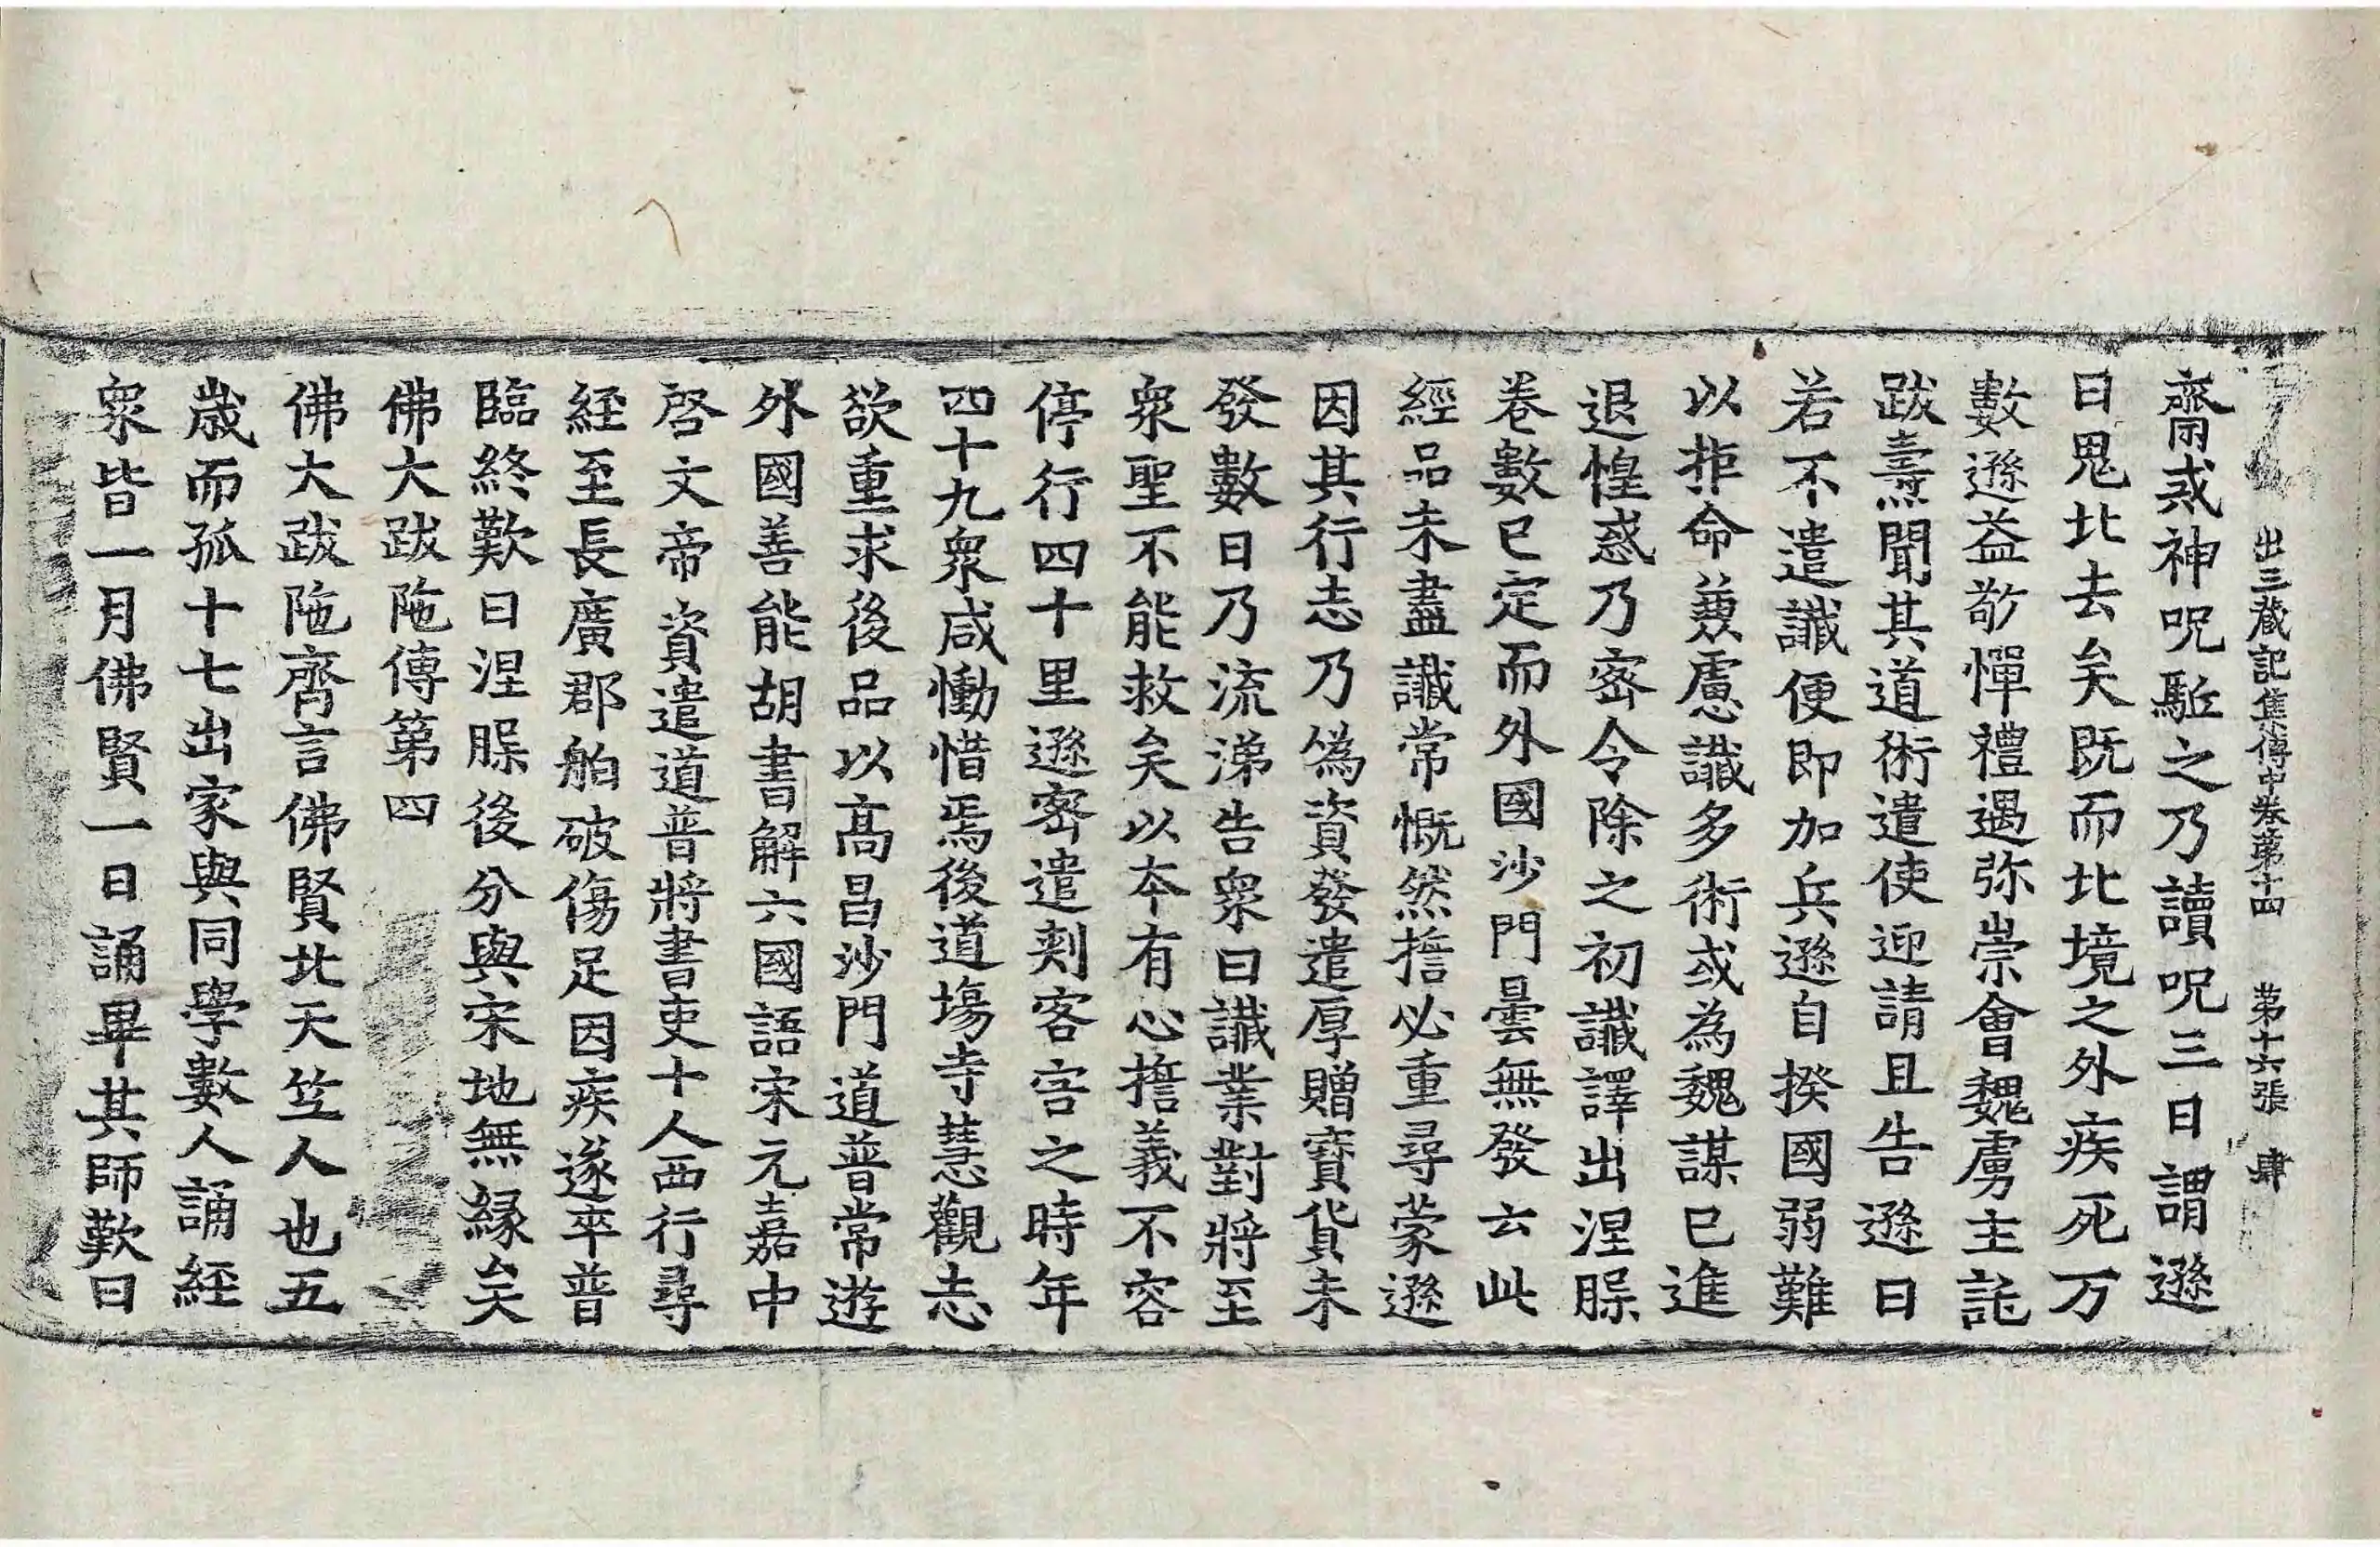 出三藏記集傳中卷第十四 第十六張 肆
齋戒神呪駈之乃讀呪三日謂遜
曰鬼北去矣既而北境之外疾死万
數遜益敬憚禮遇弥崇會魏虜主託
跋燾聞其道術遣使迎請且告遜曰
若不遣讖便即加兵遜自揆國弱難
以拒命兼慮讖多術或為魏謀已進
退惶惑乃密令除之初讖譯出涅槃
卷數已定而外國沙門曇無發云此
經品未盡讖常慨然擔必重尋蒙遜
因其行志乃偽資發遣厚贈寶貨未
發數日乃流涕告衆曰讖業對將至
衆聖不能救矣以夲有心擔義不容
停行四十里遜密遣刾客害之時年
四十九衆咸慟惜焉後道場寺慧觀志
欲重求後品以高昌沙門道普常遊
外國善能胡書解六國語宋元嘉中
啓文帝資遣道普將書吏十人西行尋
経至長廣郡舶破傷足因疾遂卒普
臨終歎曰涅槃後分與宋地無縁矣
佛大跋陁傳第四
佛大跋陁齊言佛賢北天竺人也五
歳而孤十七出家與同學數人誦経
衆皆一月佛賢一日誦畢其師歎曰